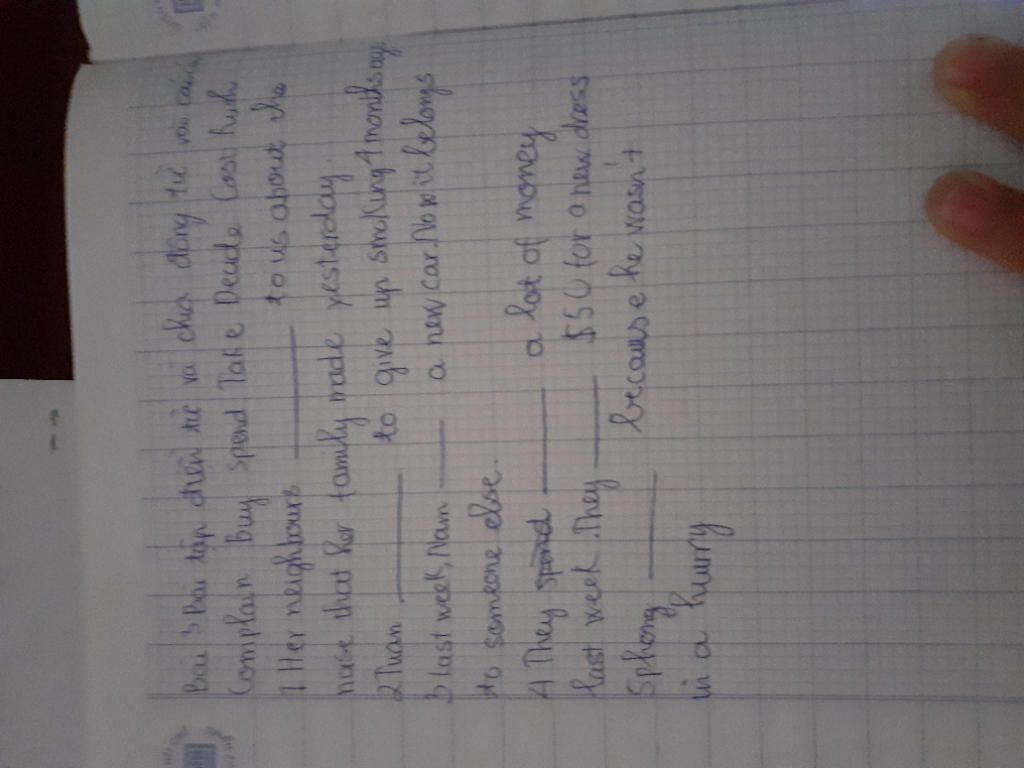 Bài 3 Bài tập điền từ và chia động từ vào câu
Complain Buy Spend Take Decide Cost Rush
1 Her neighbours ______ to us about the
noise that her family made yesterday.
2 Tuan ______ to give up smoking 4 months ago.
3 last week, Nam ____ a new car. Now it belongs
to someone else.
4 They spend ______ a lot of money
last week. They _____ $50 for a new dress
5 phong ______ because he wasn't
in a hurry